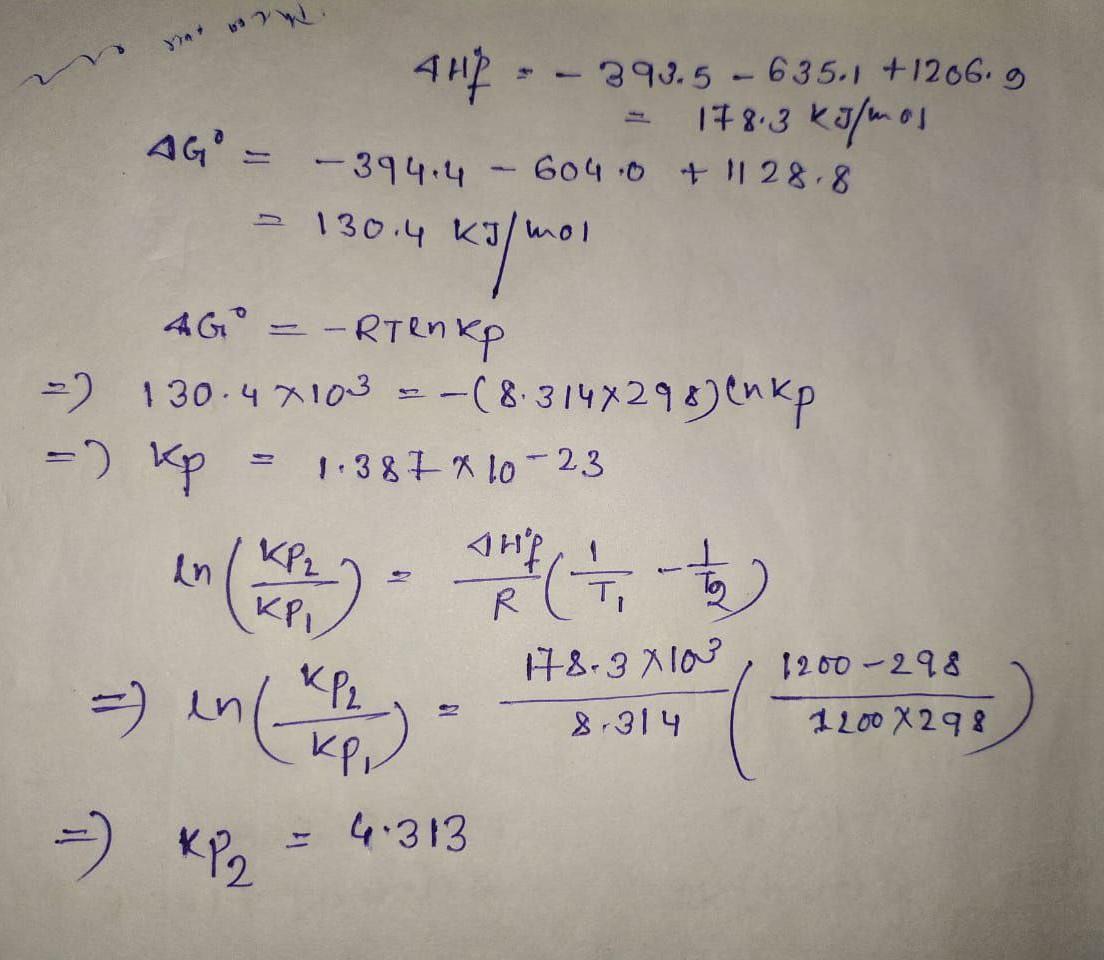 ΔH°f = - 393.5 - 635.1 + 1206.9
= 178.3 KJ/mol
ΔG° = - 394.4 - 604.0 + 1128.8
= 130.4 KJ/mol
ΔG° = - RTlnKp
=) 130.4 x 10³ = -(8.314x298)lnKp
=) Kp = 1.387 x 10-23
ln(KP₂/KP₁) = ΔH°f/R (1/T₁ - 1/T₂)
=) ln(KP₂/KP₁) = 178.3 x 10³/8.314 (1200-298/1200x298)
=) KP₂ = 4.313